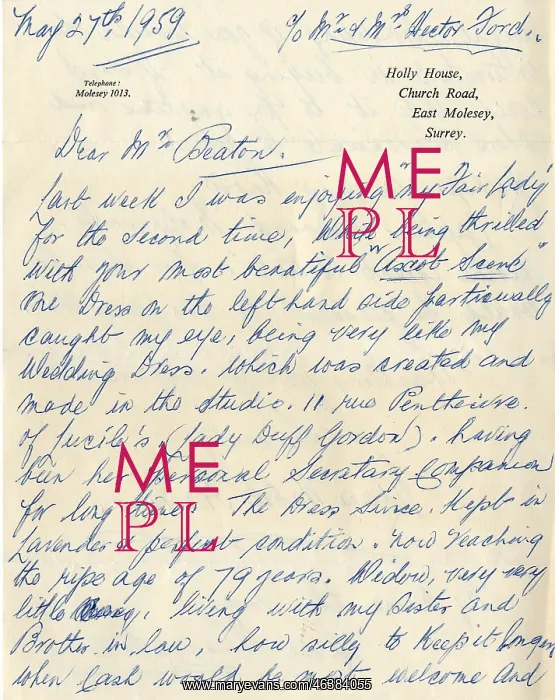 May 27th, 1959.
c/o Mr & Mrs Hector Ford.
Telephone:
Molesey 1013.
Holly House,
Church Road,
East Molesey,
Surrey.
Dear Mr Beaton.
Last week I was enjoying "My Fair Lady"
for the second time, While being thrilled
with your most beautiful "Ascot Scene"
One Dress on the left hand side particually
caught my eye, being very like my
Wedding Dress. which was created and
made in the studio. 11. rue Penthievre.
of Lucile's (Lady Duff Gordon). having
been her personal Secretary Companion
for long The Dress Since. Kept in
Lavender & perfect condition. now reaching
the ripe age of 79 years. Widow, very very
little living with my Sister and
Brother in law, how silly to keep it longer
when Cash would be most welcome and
ME
PL
ME
PL
www.maryevans.com/46384055